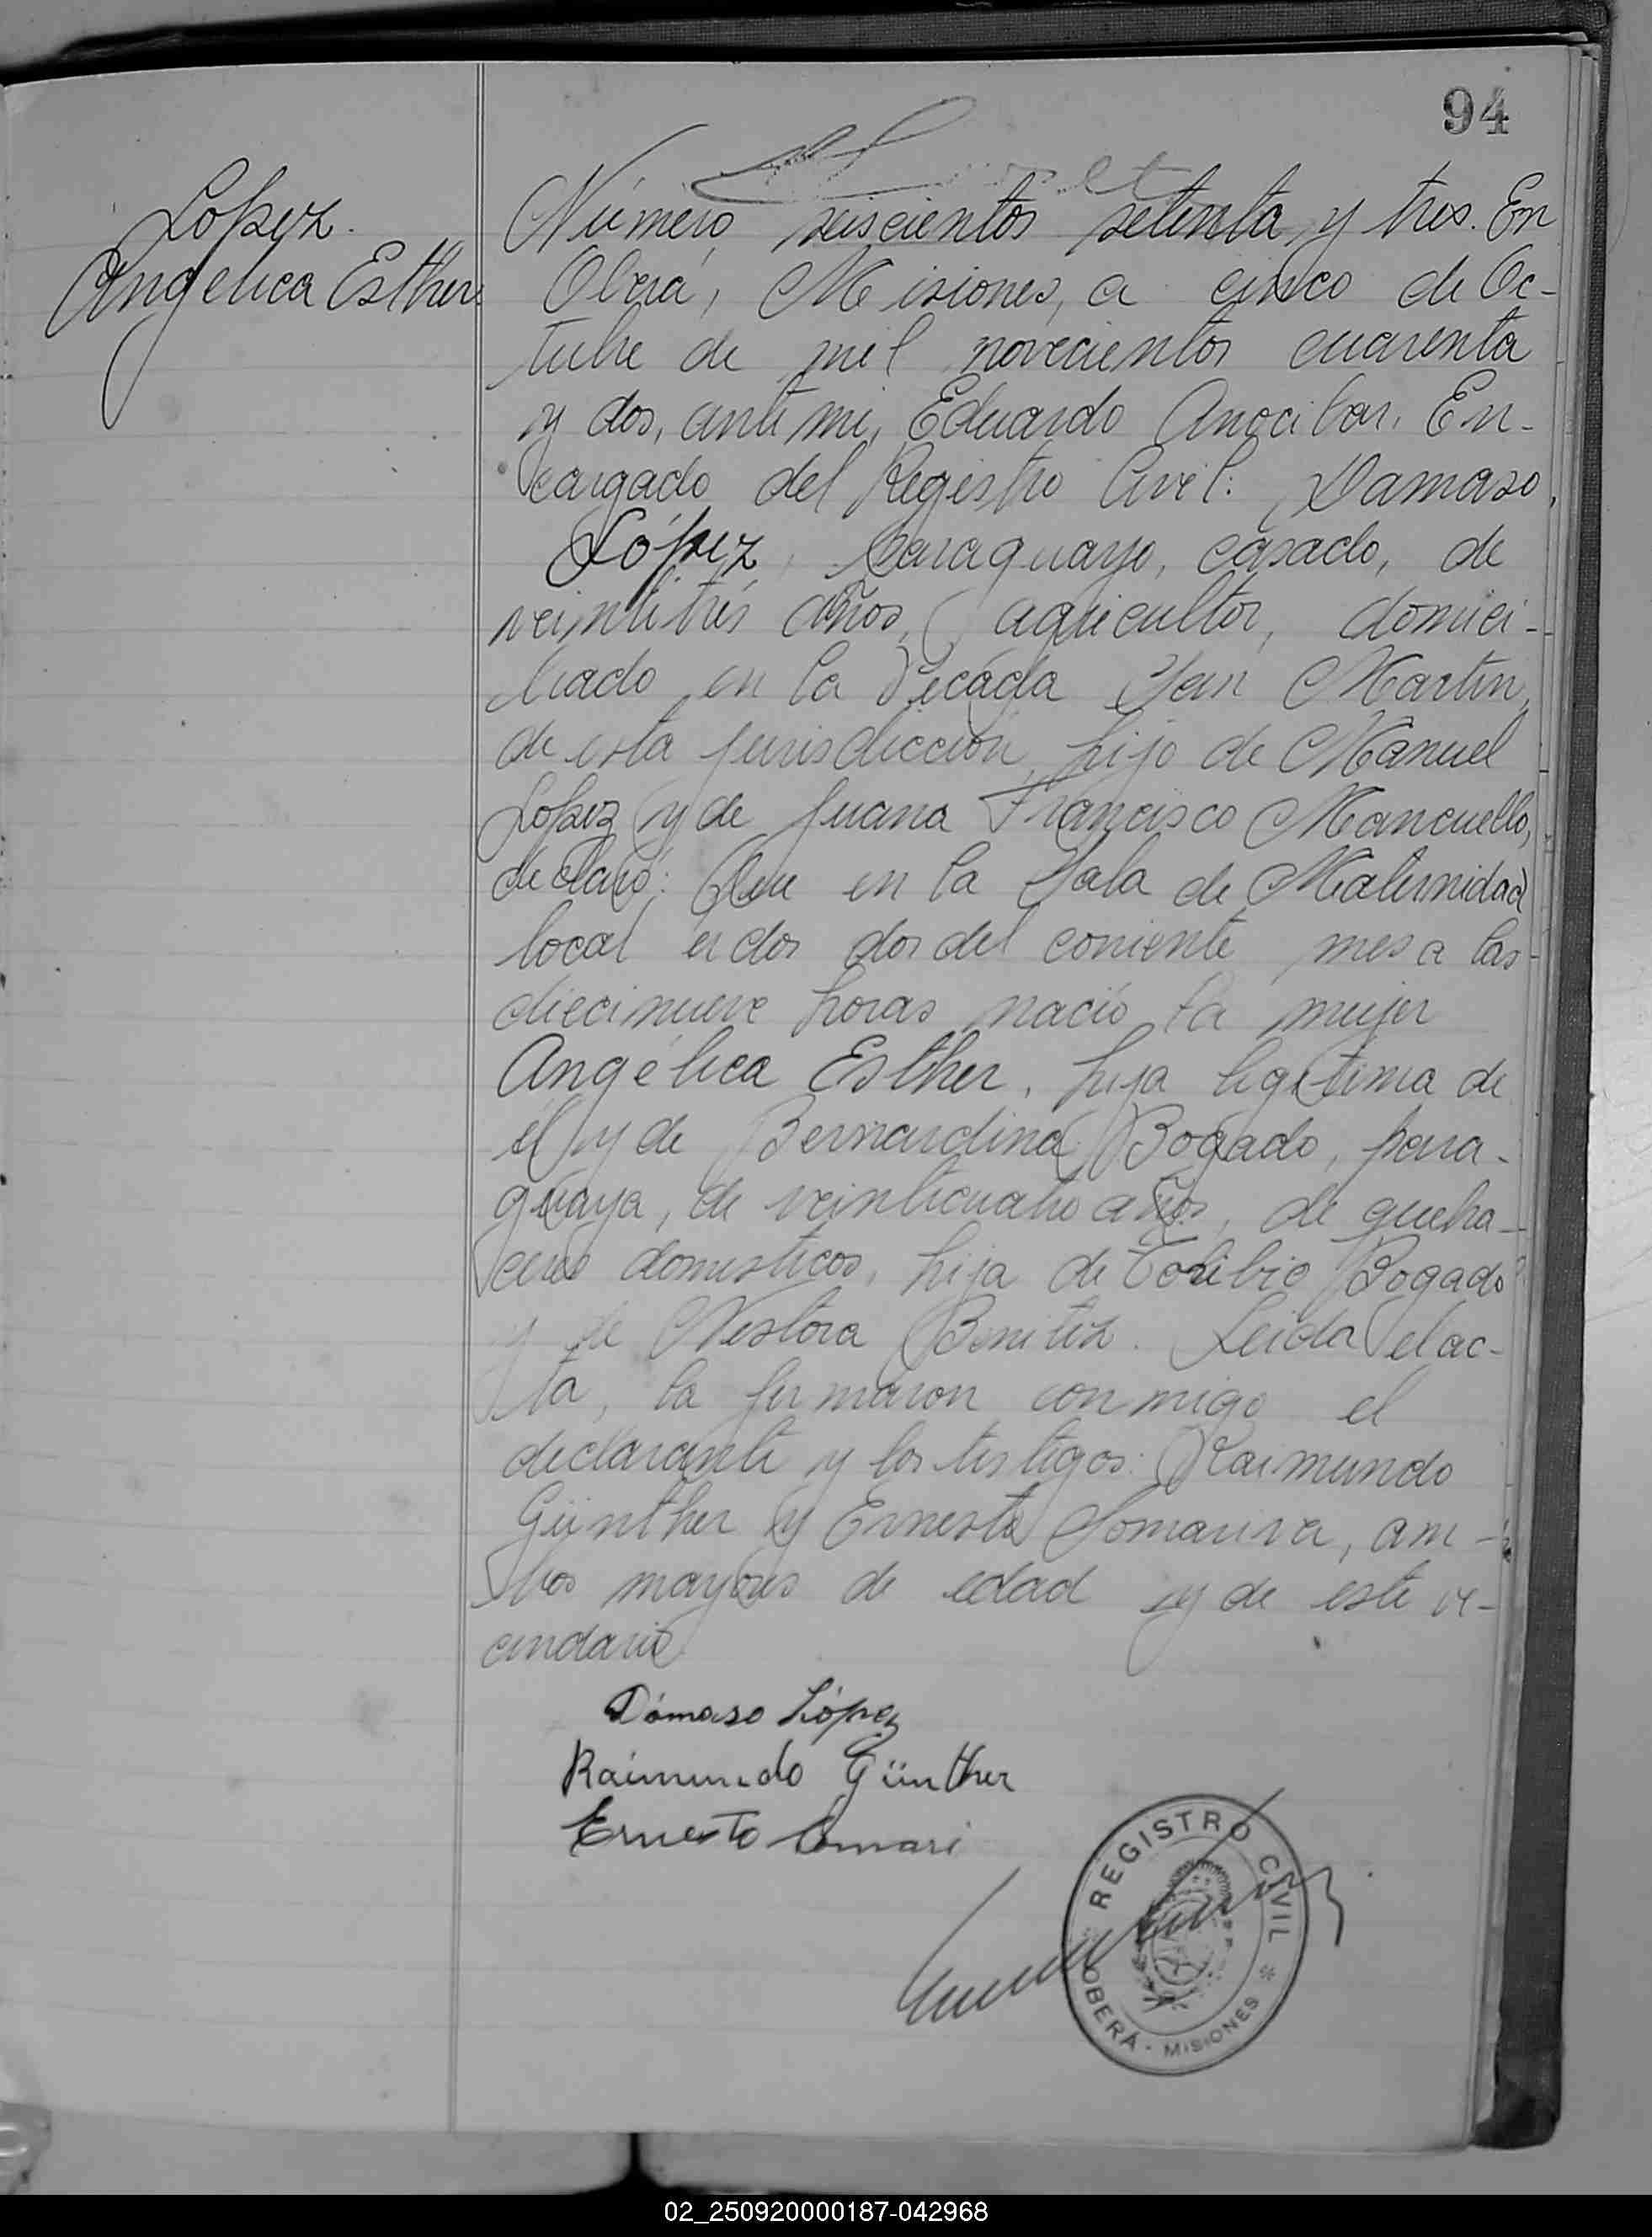 94
López.
Angélica Esther.
Número seiscientos setenta y tres. En
Oberá, Misiones, a cinco de Oc-
tubre de mil novecientos cuarenta
y dos, ante mi, Eduardo Anocibar, En-
cargado del Registro Civil: Damaso
López, paraguayo, casado, de
veintitrés años, agricultor, domici-
liado en la Picada San Martin,
de esta jurisdicción, hijo de Manuel
López y de Juana Francisco Mancuello,
declaró: Que en la Sala de Maternidad
local dos del corriente mes a las
diecinueve horas nació la mujer
Angélica Esther, hija legítima de
él y de Bernardina Bogado, para-
guaya, de veinticuatro años, de queha-
ceres domesticos, hija de Toribio Bogado
y de Nestora Benitez. Leida el ac-
ta, la firmaron conmigo el
declarante y los testigos: Raimundo
Günther y Ernesto, am-
bos mayores de edad y de este ve-
cindario
Dámaso López
Raimundo Günther
Ernesto
REGISTRO CIVIL
OBERÁ - MISIONES
02_250920000187-042968